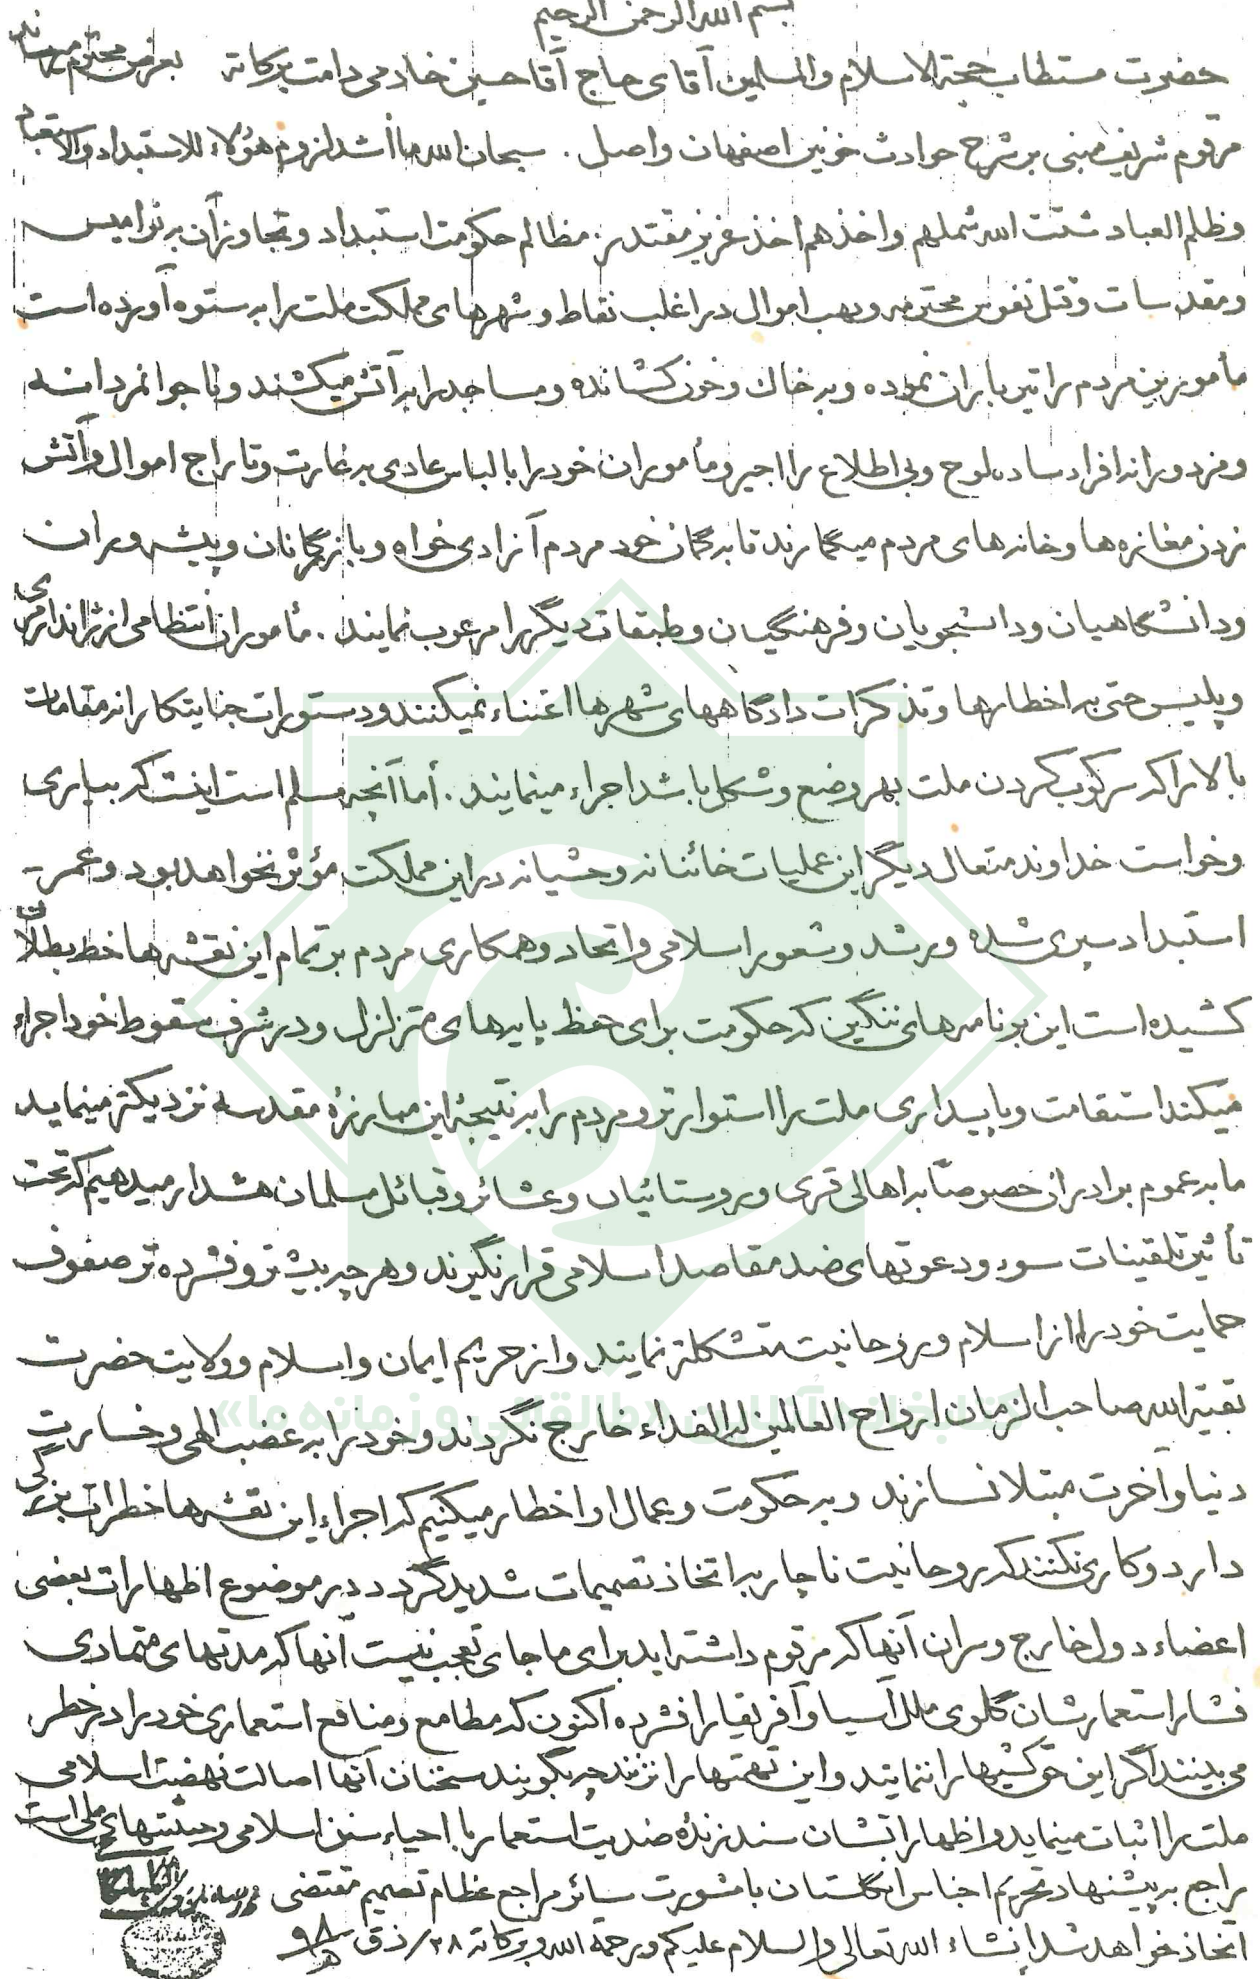 بسم الله الرحمن الرحیم
حضرت مستطاب حجة الاسلام والمسلمین آقای حاج آقا حسین خادمی دامت برکاته بعرض محترم میرساند
مرقوم شریف مبنی بر شرح حوادث خونین اصفهان واصل . سبحان الله ما أشد لزوم هؤلاء للاستبداد والاستعباد
وظلم العباد شتت الله شملهم واخذهم اخذ عزیز مقتدر. مظالم حکومت استبداد وتجاوز آن به نوامیس
ومقدسات وقتل نفوس محترمه ونهب اموال در اغلب نقاط وشهرهای مملکت ملت را به ستوه آورده است
مأمورین مردم را تیرباران نموده وبه خاک وخون کشانده ومساجد را به آتش میکشند وناجوانمردانه
ومزدورانه افراد ساده لوح وبی اطلاع را اجیر ومأموران خود را با لباس عادی به غارت وتاراج اموال وآتش
زدن مغازه ها وخانه های مردم میگمارند تا به گمان خود مردم آزادی خواه وبازرگانان وپیشه وران
ودانشگاهیان ودانشجویان وفرهنگیان وطبقات دیگر را مرعوب نمایند . مأموران انتظامی از ژاندارمری
وپلیس حتی به اخطارها وتذکرات دادگاههای شهرها اعتناء نمیکنند ودستورات جنایتکارانه مقامات
بالا را که سرکوب کردن ملت بهر وضع وشکل باشد اجراء مینمایند . أما آنچه مسلم است اینست که بیاری
وخواست خداوند متعال دیگر این عملیات خائنانه وحشیانه در این مملکت مؤثر نخواهد بود وعمر
استبداد سپری شده ورشد وشعور اسلامی واتحاد وهمکاری مردم بر تمام این نقشه ها خط بطلان
کشیده است این برنامه های ننگین که حکومت برای حفظ پایه های متزلزل ودر شرف سقوط خود اجراء
میکند استقامت وپایداری ملت را استوارتر ومردم را به نتیجهٔ این مبارزهٔ مقدسه نزدیکتر مینماید
ما به عموم برادران خصوصاً به اهالی قری وروستائیان وعشائر وقبائل مسلمان هشدار میدهیم که تحت
تأثیر تلقینات سوء ودعوتهای ضد مقاصد اسلامی قرار نگیرند وهرچه بیشتر وفشرده تر صفوف
حمایت خود را از اسلام وروحانیت متشکلتر نمایند واز حریم ایمان واسلام وولایت حضرت
بقیة الله صاحب الزمان ارواح العالمین له الفداء خارج نگردند وخود را به غضب الهی وخسارت
دنیا وآخرت مبتلا نسازند وبه حکومت وعمال او اخطار میکنیم که اجراء این نقشه ها خطرات بزرگی
دارد وکاری نکنند که روحانیت ناچار به اتخاذ تصمیمات شدید گردد در موضوع اظهارات بعضی
اعضاء دول خارج وسران آنها که مرقوم داشته اید برای ما جای تعجب نیست آنها که مدتهای متمادی
فشار استعمارشان گلوی ملل آسیا وآفریقا را فشرده اکنون که مطامع ومنافع استعماری خود را در خطر
می بینند اگر این حق کشیها را ننمایند واین تهمتها را نزنند چه بگویند سخنان آنها اصالت نهضت اسلامی
ملت را اثبات مینماید واظهاراتشان سند زندهٔ ضدیت استعمار با احیاء سنن اسلامی وحیثیتهای ملی است
راجع به پیشنهاد تحریم اجناس انگلستان با مشورت سائر مراجع عظام تصمیم مقتضی
اتخاذ خواهد شد إنشاء الله تعالی والسلام علیکم ورحمة الله وبرکاته ۲۸/ذق ۹۸ھ
کتابخانه آنلاین «طالقانی و زمانه ما»